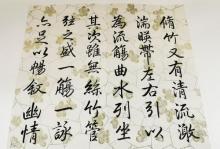 脩竹又有清流激
湍暎帶左右引以
為流觴曲水列坐
其次雖無絲竹管
弦之盛一觴一詠
亦足以暢叙幽情